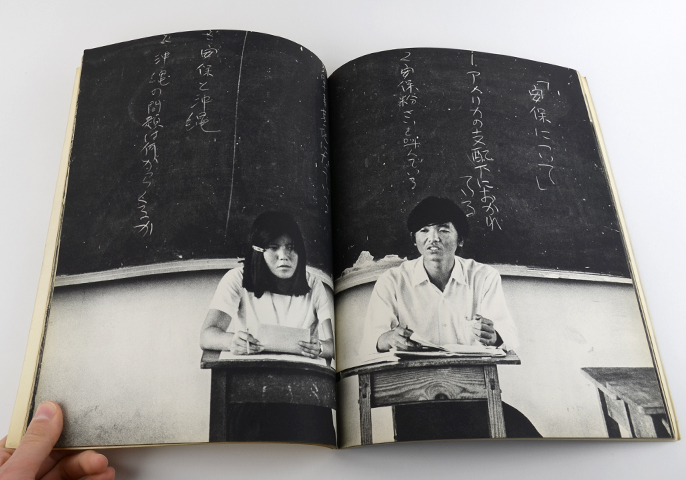 「安保について」
1 アメリカの支配下におかれ
ている
2 安保粉さいと叫んでいる
安保と沖縄
沖縄の問題は何からくるか